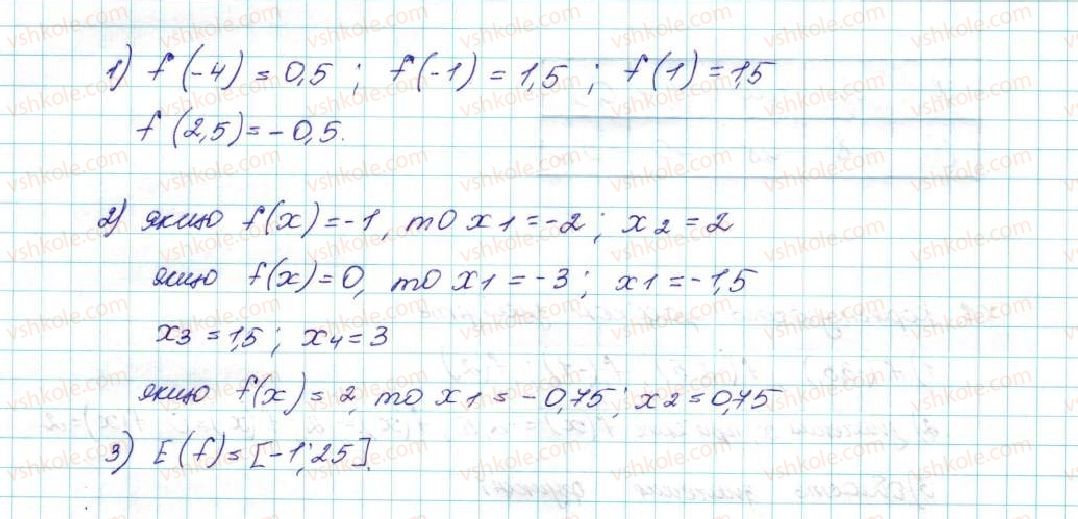 1) f(-4) = 0,5 ; f(-1) = 1,5 ; f(1) = 1,5
f(2,5) = -0,5.
2) якщо f(x) = -1, то x1 = -2 ; x2 = 2
якщо f(x) = 0, то x1 = -3 ; x1 = -1,5
x3 = 1,5 ; x4 = 3
якщо f(x) = 2, то x1 = -0,75 ; x2 = 0,75
3) E(f) = [-1; 25].